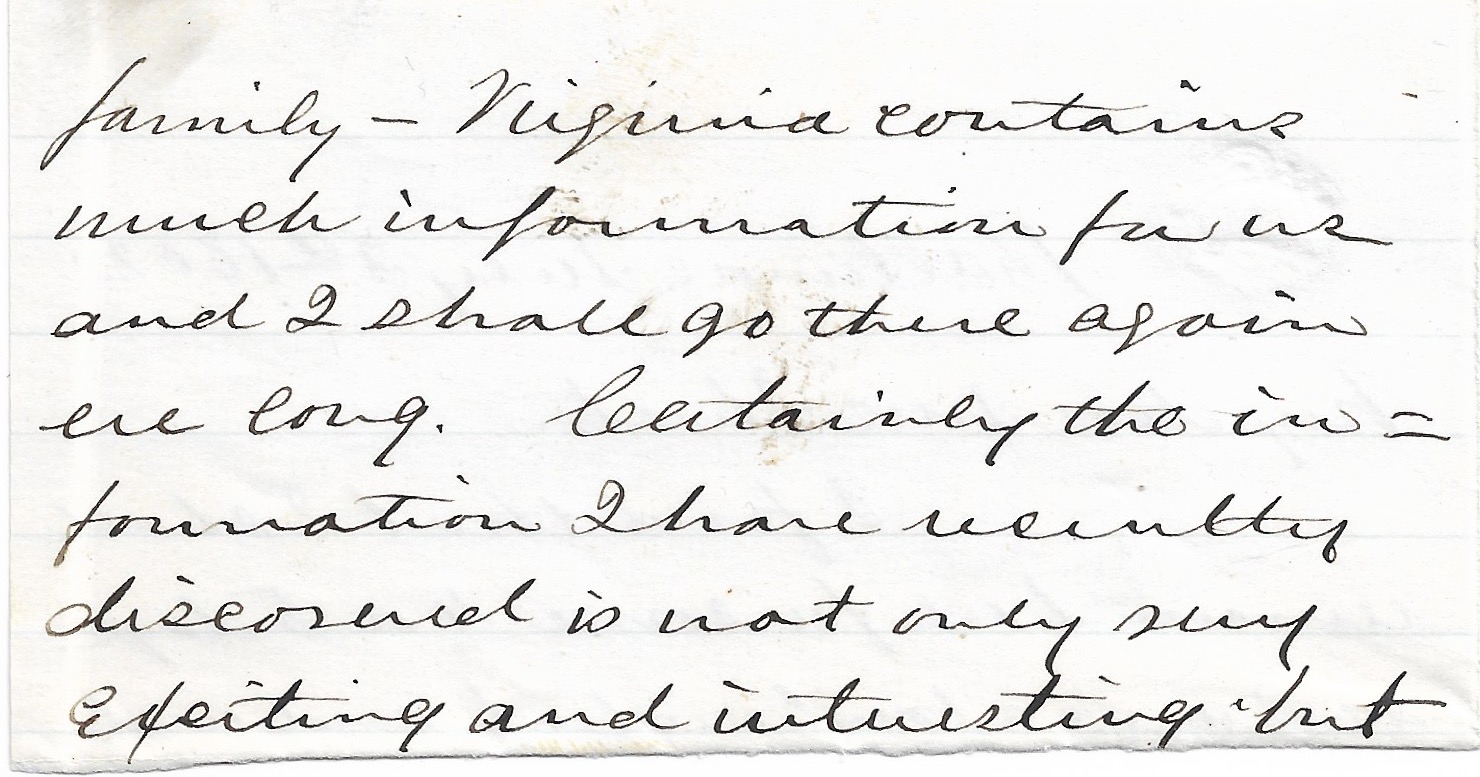 family – Virginia contains
much information for us
and I shall go there again
ere long. Certainly the in=
formation I have recently
discovered is not only very
exciting and interesting but